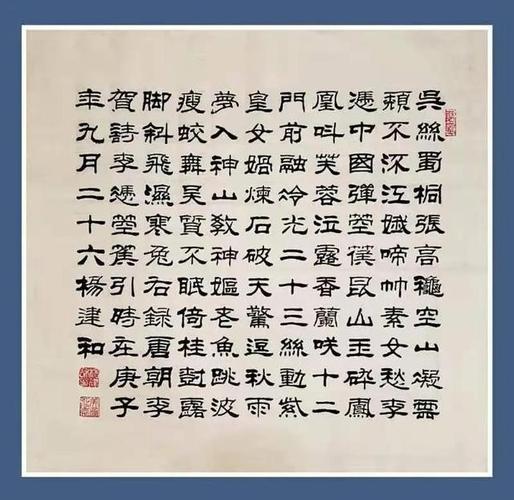 吳絲蜀桐張高穐空山凝雲
頹不流江娥啼竹素女愁李
憑中國彈箜篌昆山玉碎鳳
凰叫芙蓉泣露香蘭咲十二
門前融冷光二十三絲動紫
皇女媧煉石破天驚逗秋雨
夢入神山教神嫗老魚跳波
瘦蛟舞吳質不眠倚桂樹露
脚斜飛濕寒兔右錄唐朝李
賀詩李憑箜篌引時在庚子
年九月二十六楊建和